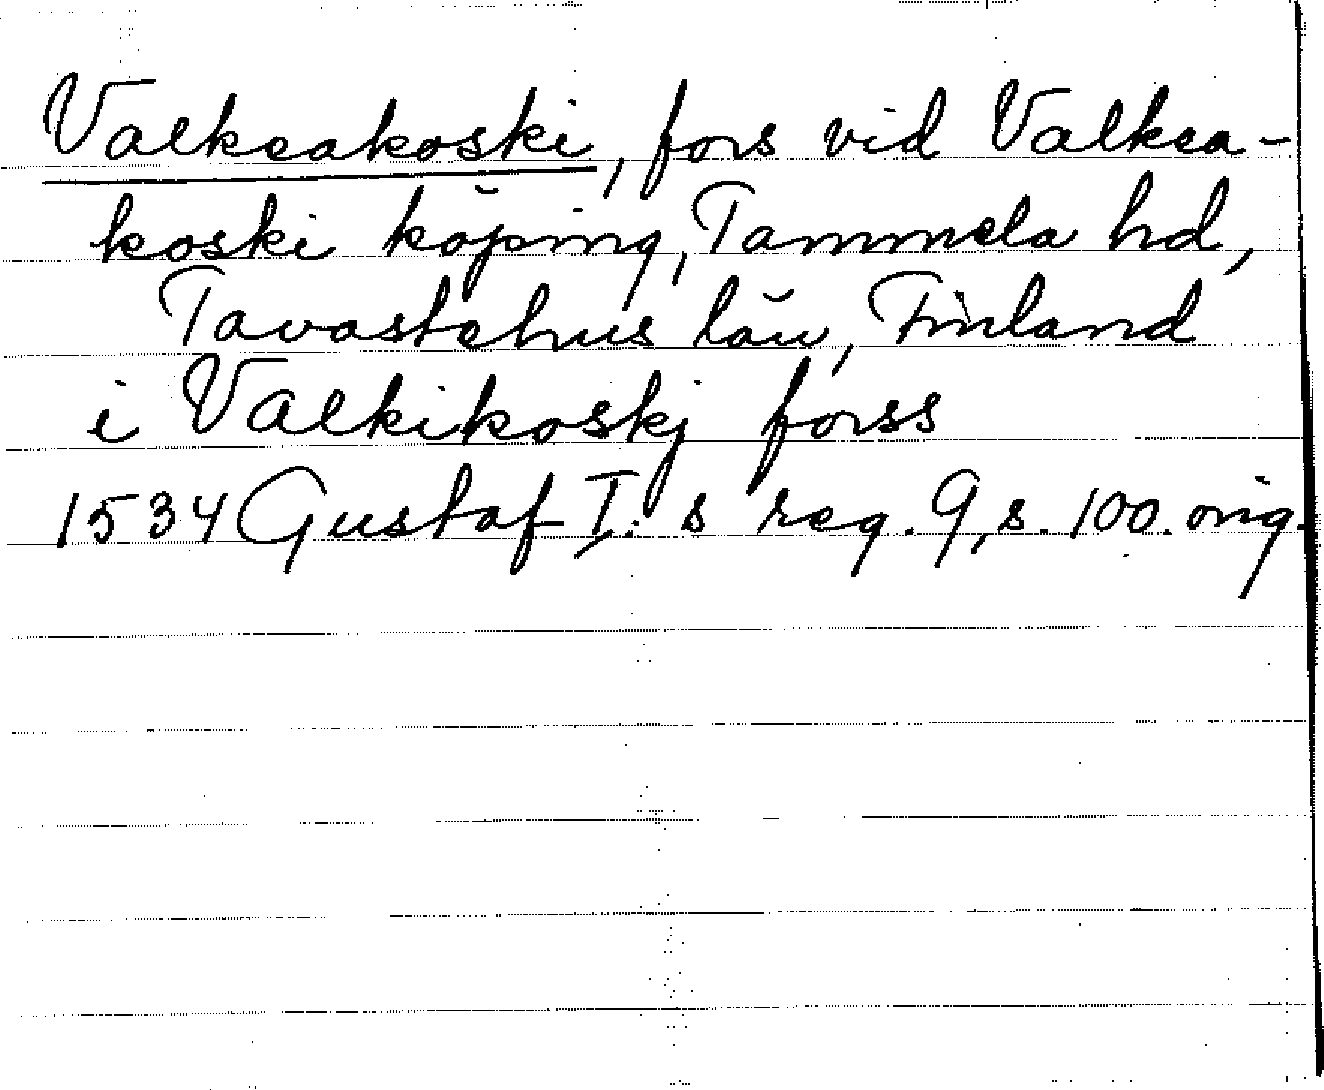 Valkeakoski, fors vid Valkea-
koski köping, Tammela hd,
Tavastehus län, Finland
i Valkikoskj forss
1534 Gustaf I:s reg. 9, s. 100. orig.